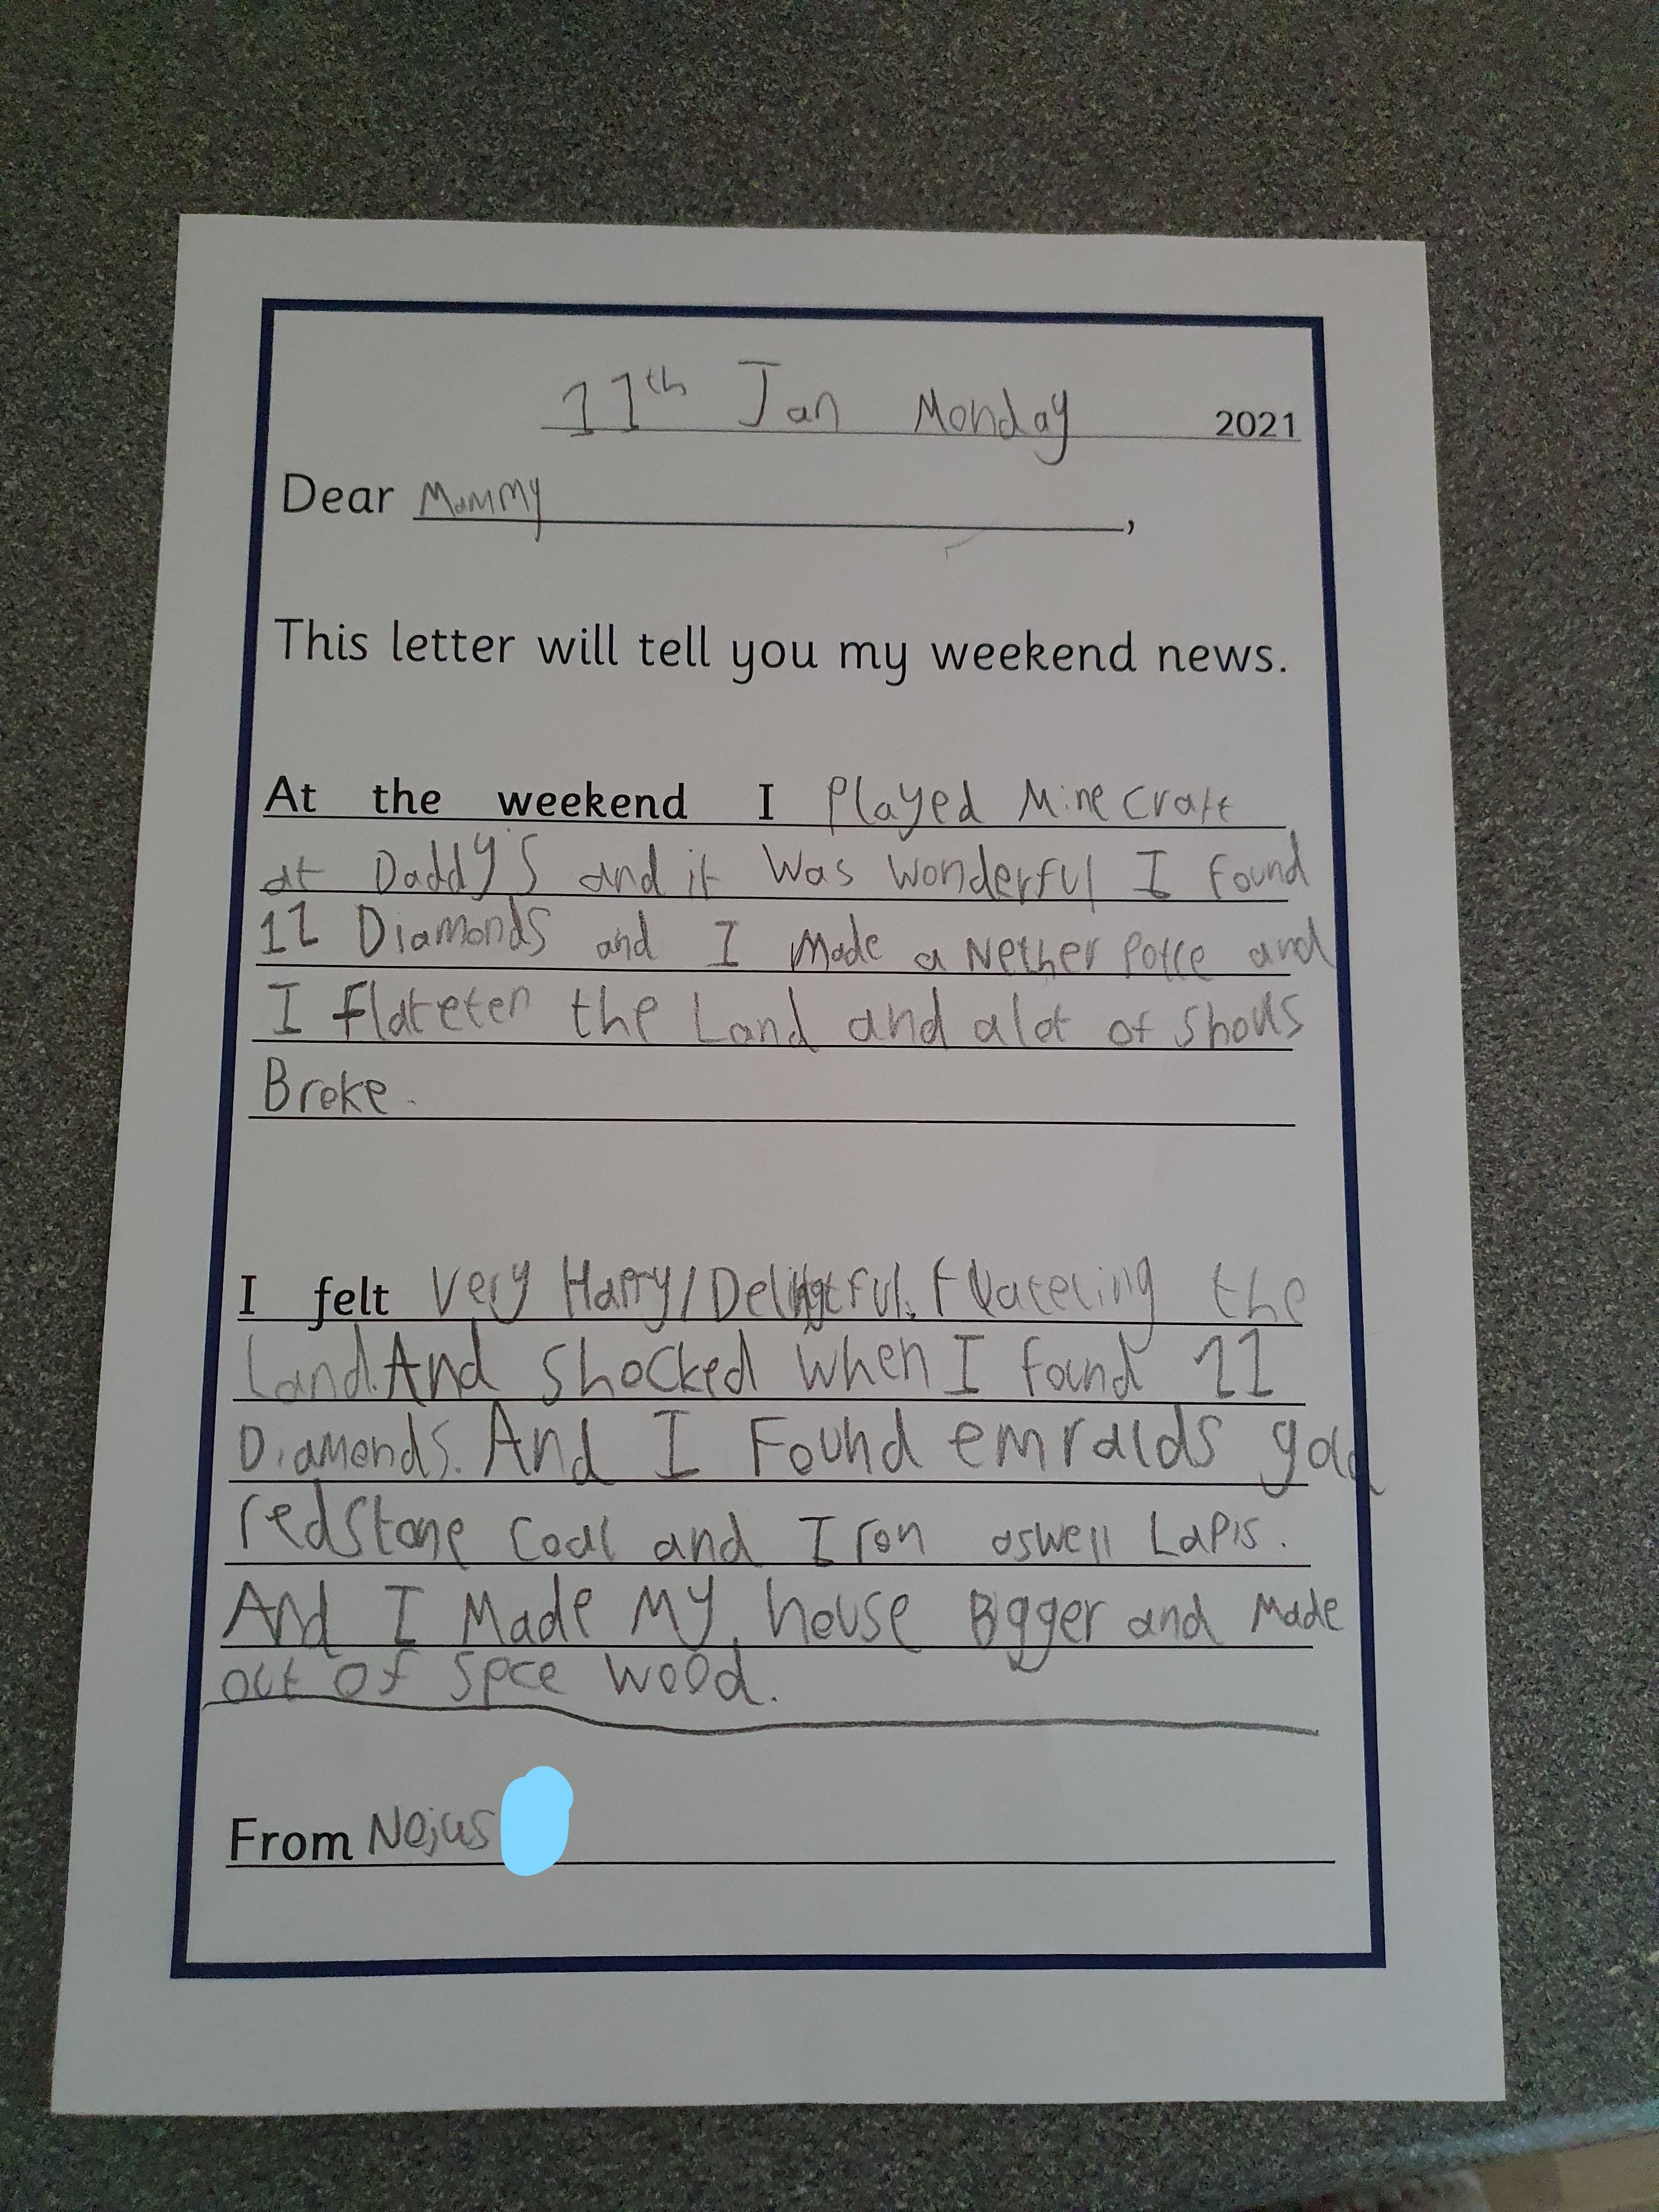 11th Jan Monday 2021
Dear Mammy,
This letter will tell you my weekend news.
At the weekend I Played Minecraft
at Daddy's and it Was Wonderful I found
11 Diamonds and I Made a Nether and
I flateten the Land and alot of
Broke.
I felt Very Happy/ the
Land. And Shocked when I found 11
Diamonds. And I Found emralds
redstone Coal and Iron aswell Lapis.
And I Made My house Bigger and Made
out of Spce Wood.
From Nojus